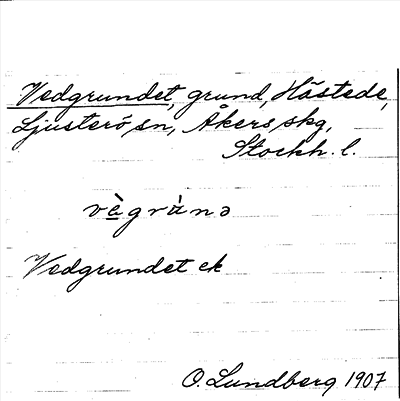 Vedgrundet, grund, Hästede,
Ljusterö sn, Åkers skg,
Stockh. l.
vègrànə
Vedgrundet ek
O. Lundberg 1907